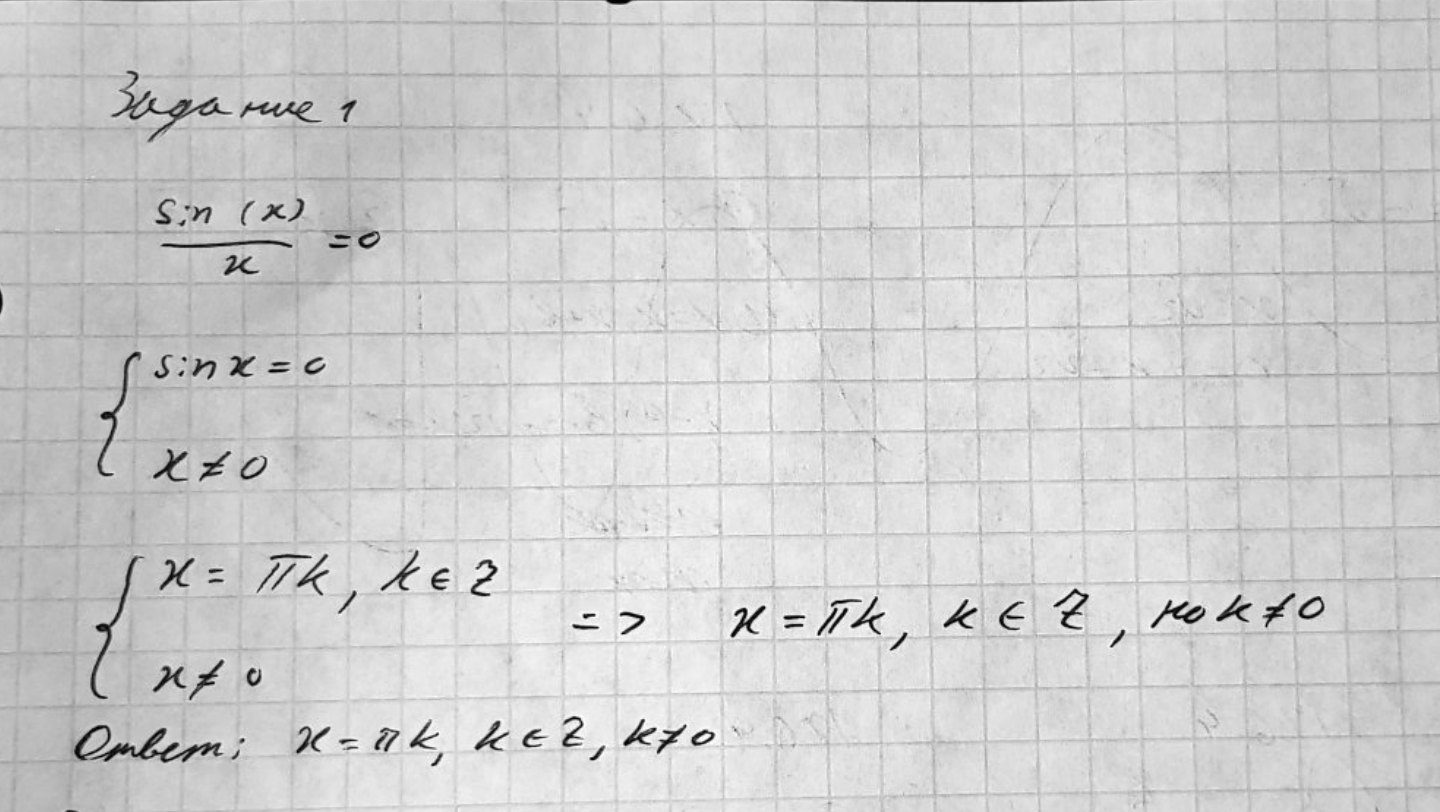 Задание 1
sin (x)
x
=0
sin x = 0
x ≠ 0
x = πk, k ∈ Z
x ≠ 0
=> x = πk, k ∈ Z, но k ≠ 0
Ответ: x = πk, k ∈ Z, k ≠ 0